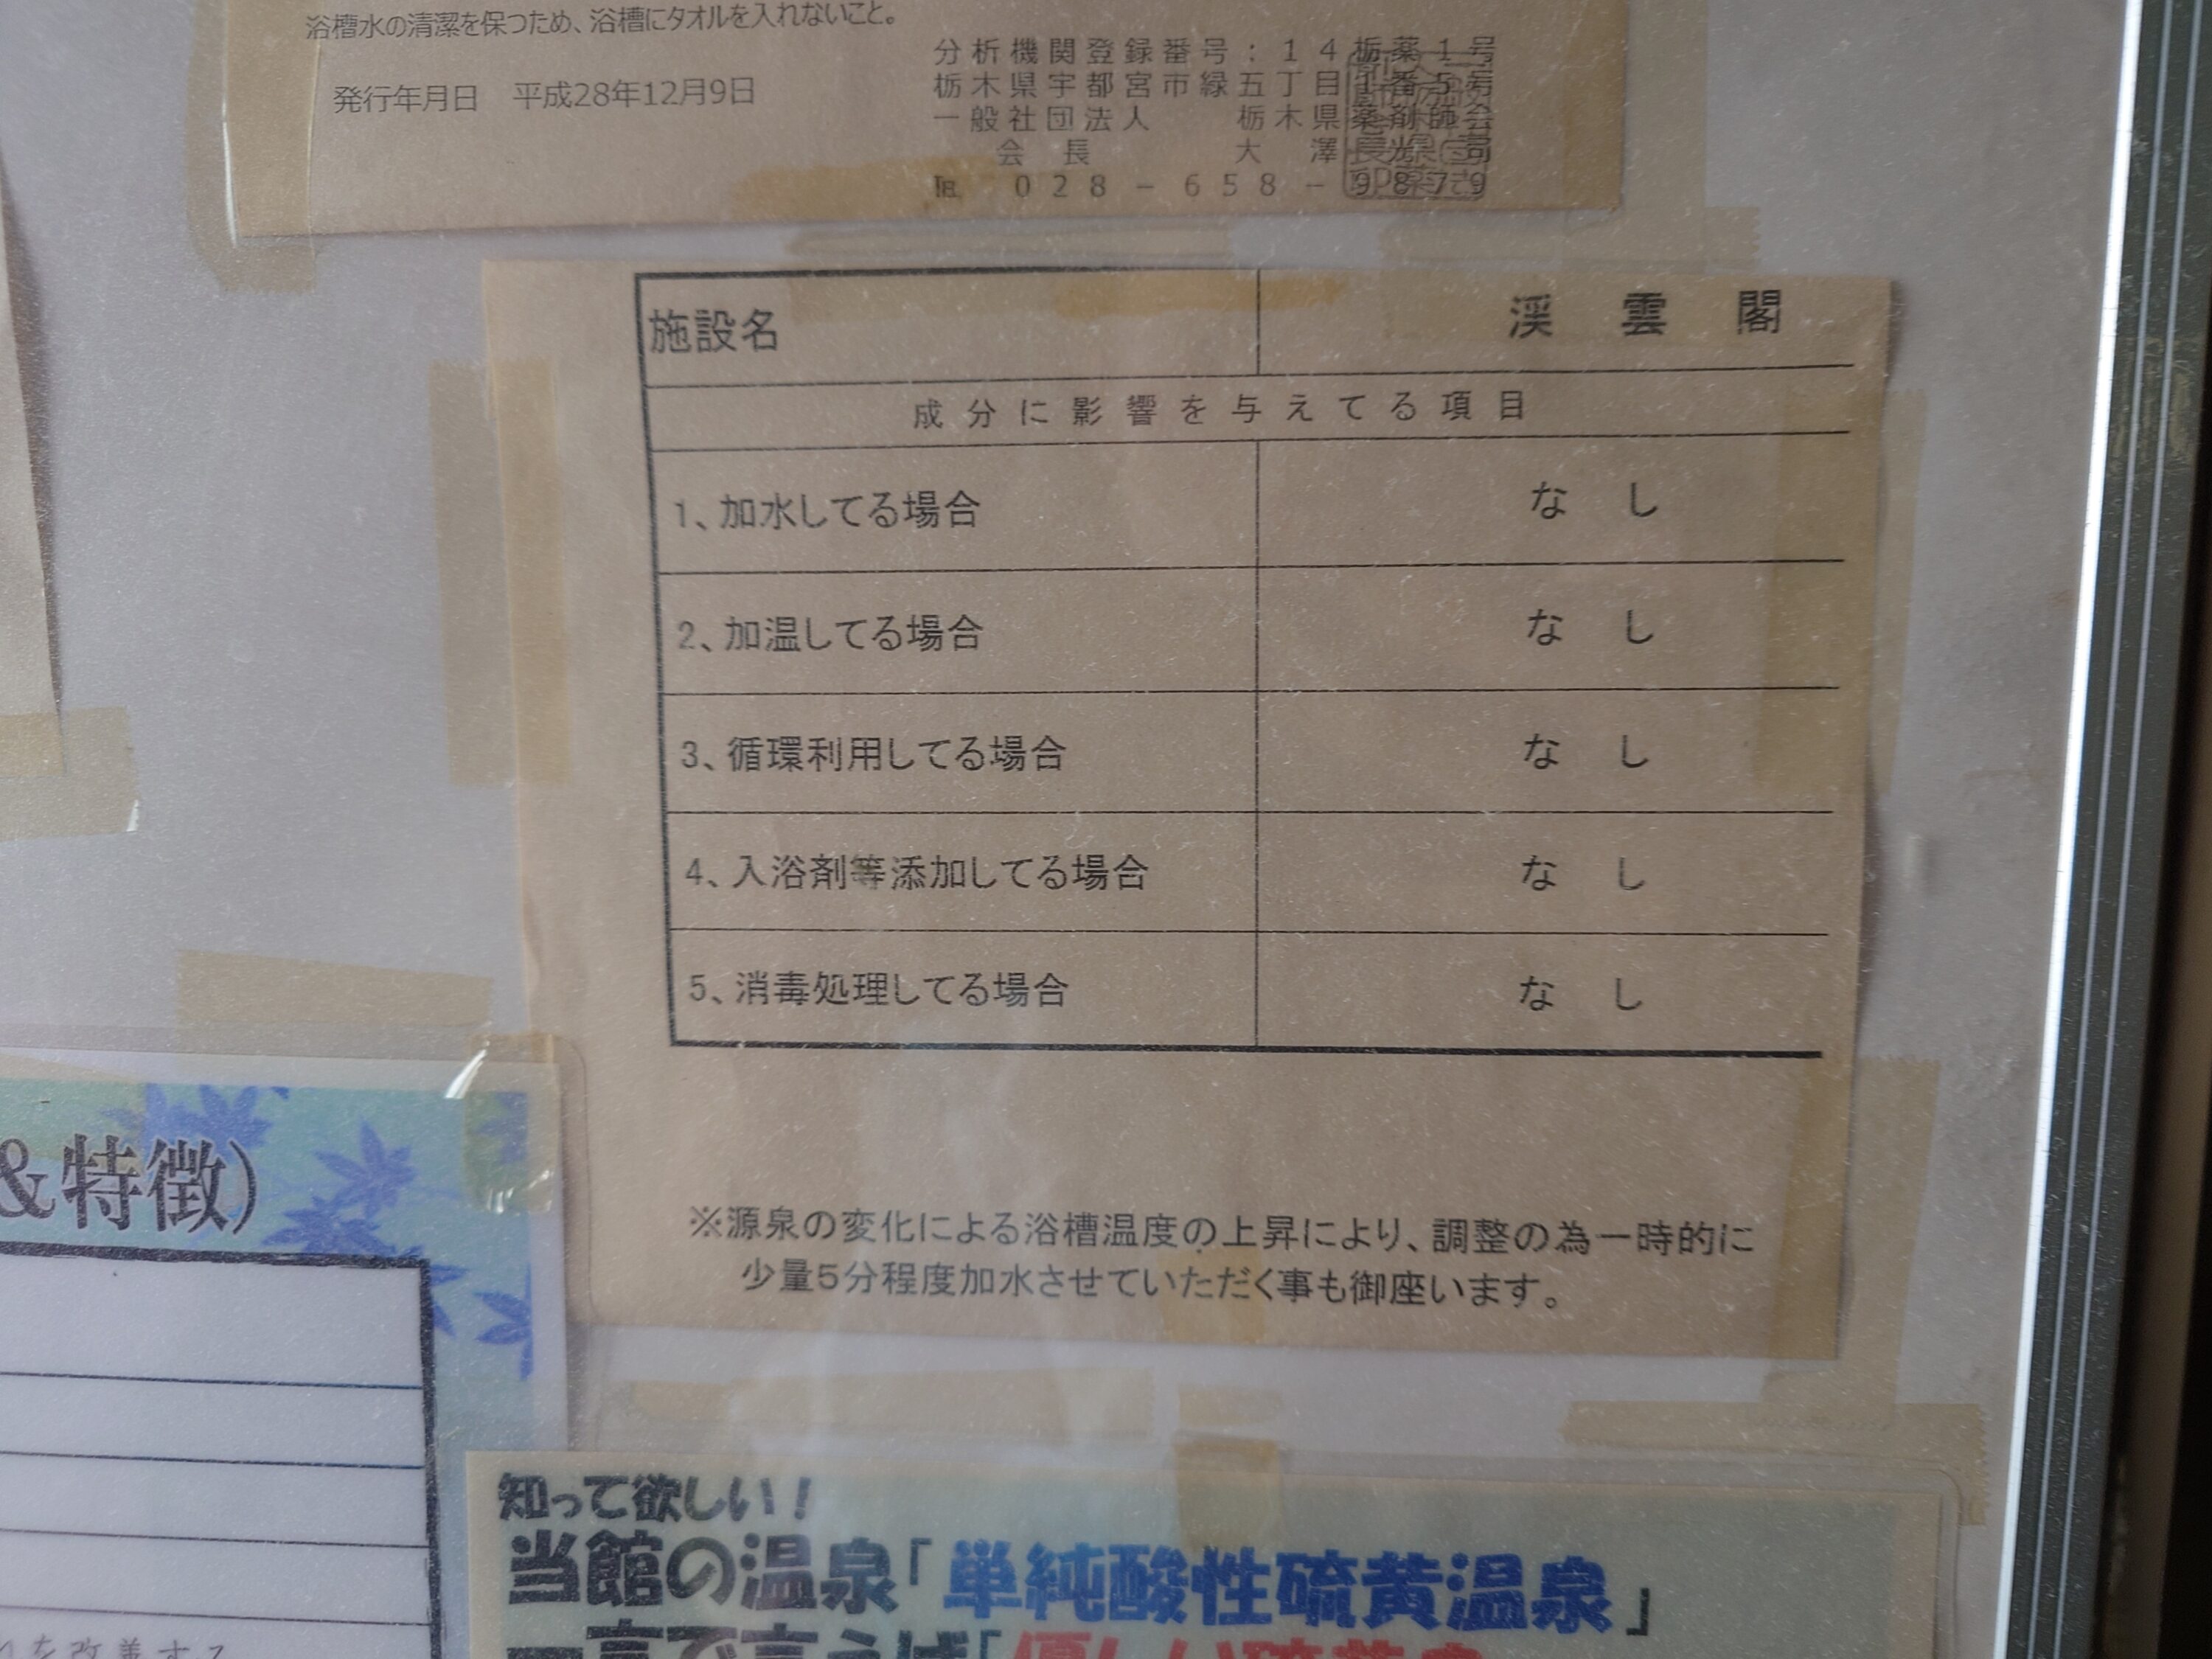 浴槽水の清潔を保つため、浴槽にタオルを入れないこと。
発行年月日　平成28年12月9日
分析機関登録番号：14栃薬1号
栃木県宇都宮市緑五丁目1番5号
一般社団法人　栃木県薬剤師会
会長　大澤光司
℡ 028－658－9879
施設名　渓雲閣
成分に影響を与えてる項目
1、加水してる場合　なし
2、加温してる場合　なし
3、循環利用してる場合　なし
4、入浴剤等添加してる場合　なし
5、消毒処理してる場合　なし
※源泉の変化による浴槽温度の上昇により、調整の為一時的に
少量5分程度加水させていただく事も御座います。
&特徴）
を改善する
知って欲しい！
当館の温泉「単純酸性硫黄温泉」
一言で言えば「優しい硫黄泉